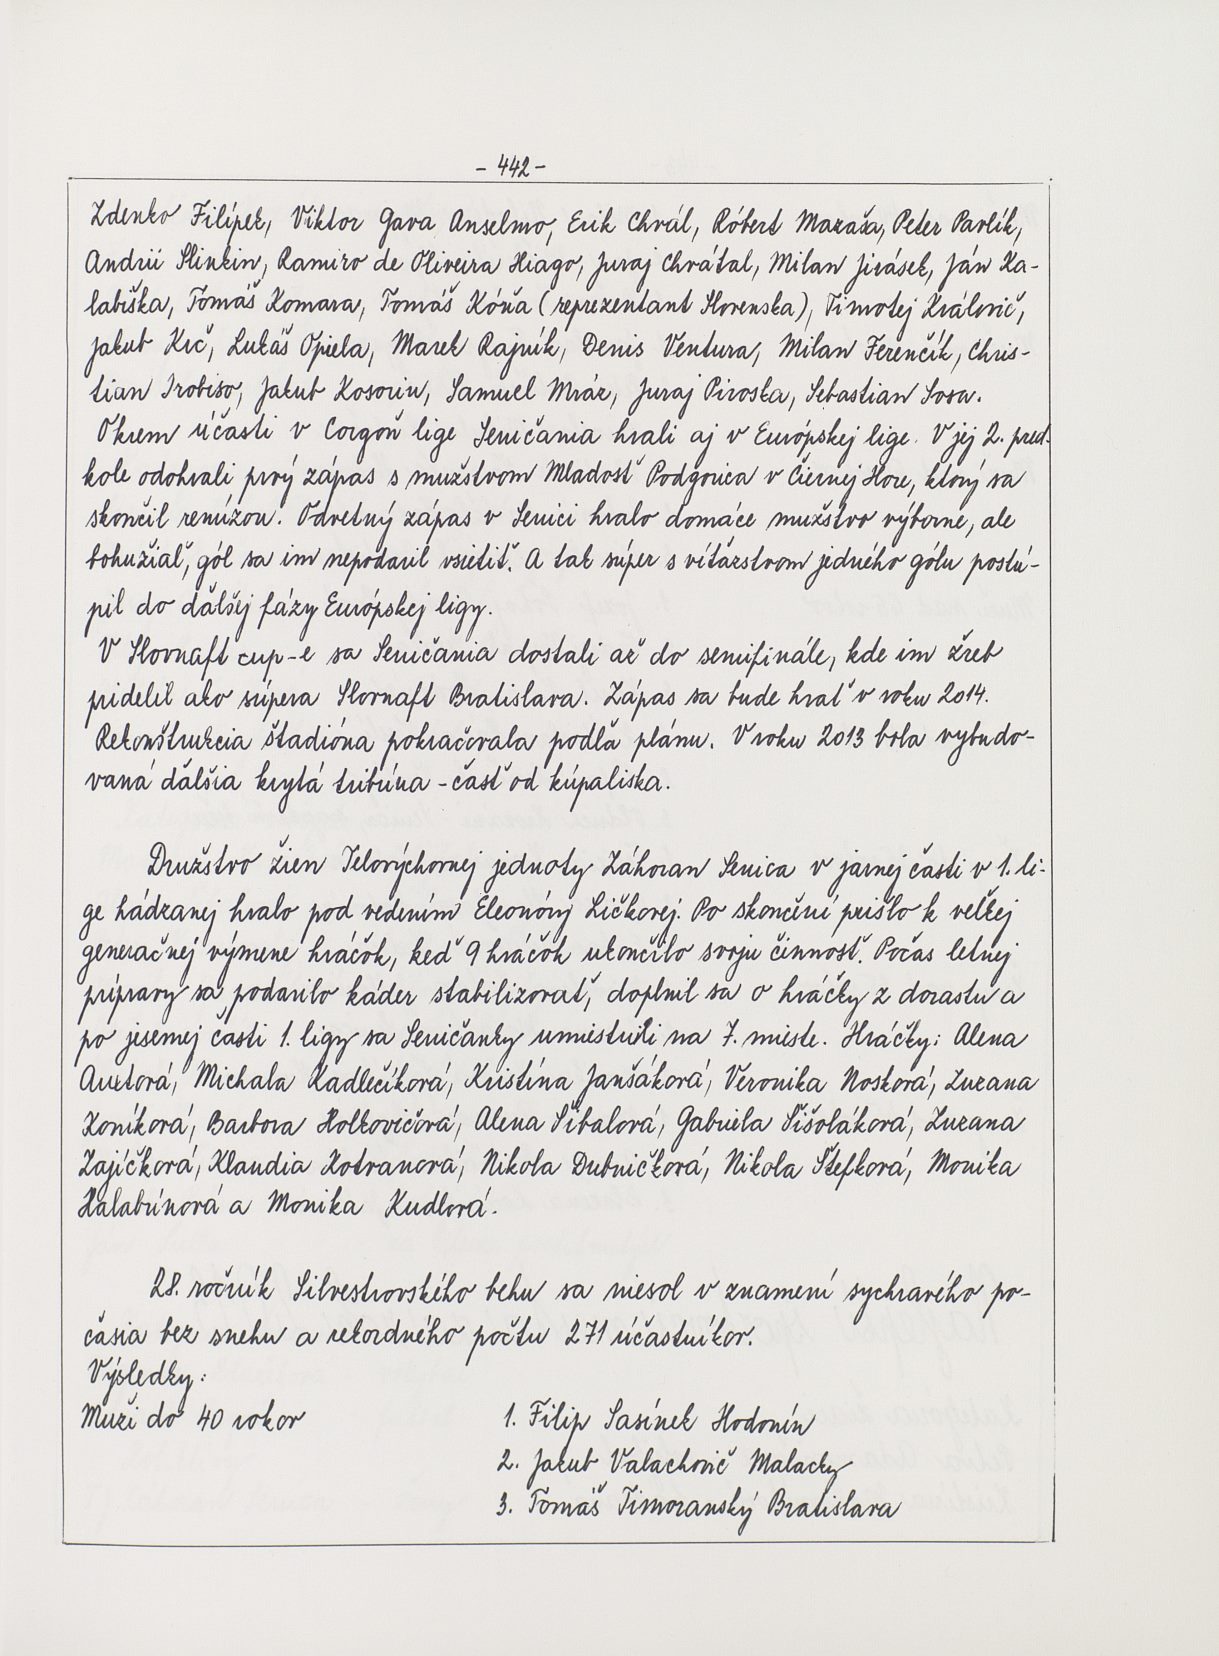 - 442 -
Zdenko Filípek, Viktor Gava Anselmo, Erik Chvál, Róbert Mazaňa, Peter Pavlík,
Andrii Slinkin, Ramiro de Oliveira Hiago, Juraj Chvátal, Milan Jirásek, Ján Ka-
labiška, Tomáš Komara, Tomáš Kóňa (reprezentant Slovenska), Timotej Královič,
Jakub Krč, Lukáš Opiela, Marek Rajník, Denis Ventura, Milan Ferenčík, Chris-
tian Irobiso, Jakub Kosorin, Samuel Mráz, Juraj Piroska, Sebastian Sosa.
Okrem účasti v Corgoň lige Seničania hrali aj v Európskej lige. V jej 2. pred-
kole odohrali prvý zápas s mužstvom Mladosť Podgorica v Čiernej Hore, ktorý sa
skončil remízou. Odvetný zápas v Senici hralo domáce mužstvo výborne, ale
bohužiaľ, gól sa im nepodaril vsietiť. A tak súper s víťazstvom jedného gólu postú-
pil do ďalšej fázy Európskej ligy.
V Slovnaft cup-e sa Seničania dostali až do semifinále, kde im žreb
pridelil ako súpera Slovnaft Bratislava. Zápas sa bude hrať v roku 2014.
Rekonštrukcia štadióna pokračovala podľa plánu. V roku 2013 bola vybudo-
vaná ďalšia krytá tribúna - časť od kúpaliska.
Družstvo žien Telovýchovnej jednoty Záhoran Senica v jarnej časti v 1. li-
ge hádzanej hralo pod vedením Eleonóry Ličkovej. Po skončení prišlo k veľkej
generačnej výmene hráčok, keď 9 hráčok ukončilo svoju činnosť. Počas letnej
prípravy sa podarilo káder stabilizovať, doplnil sa o hráčky z dorastu a
po jesennej časti 1. ligy sa Seničanky umiestnili na 7. mieste. Hráčky: Alena
Auxtová, Michala Kadlečíková, Kristína Janšáková, Veronika Nosková, Zuzana
Koníková, Barbora Holkovičová, Alena Síbalová, Gabriela Šišoláková, Zuzana
Zajíčková, Klaudia Kotranová, Nikola Dubničková, Nikola Štefková, Monika
Halabúnová a Monika Kudlová.
28. ročník Silvestrovského behu sa niesol v znamení sychravého po-
časia bez snehu a rekordného počtu 271 účastníkov.
Výsledky:
Muži do 40 rokov 1. Filip Sasínek Hodonín
2. Jakub Valachovič Malacky
3. Tomáš Timoranský Bratislava